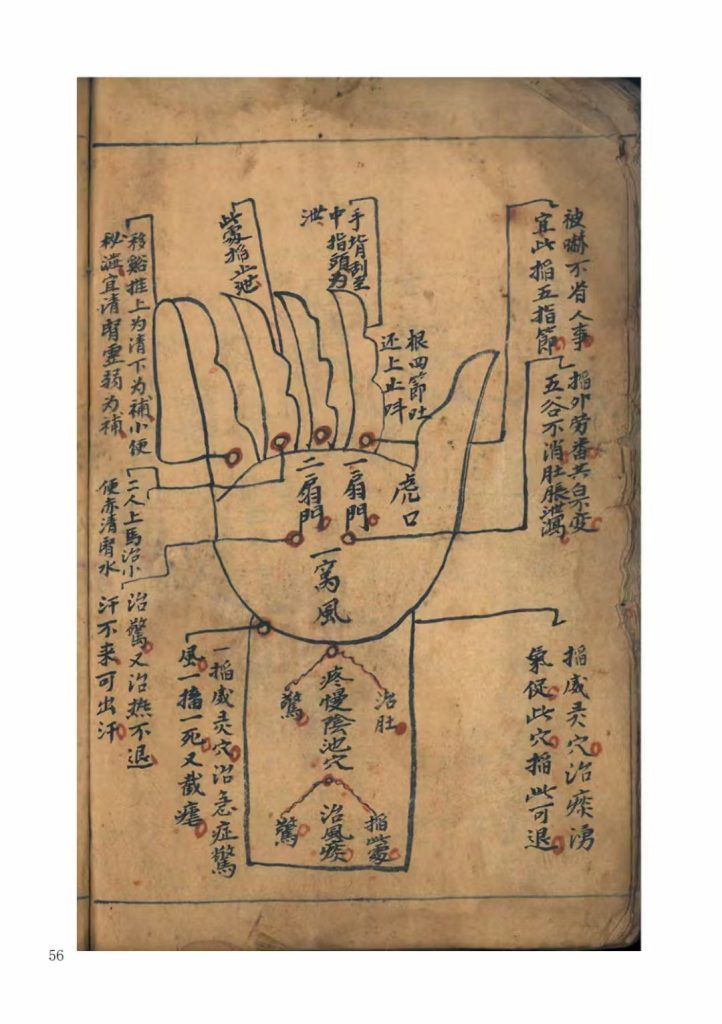 被嚇不省人事
宜此搯五指節
搯
五谷不消肚脹泄瀉
手背刮至
中指頭为
泄
根四節吐
还上止吽
此處搯止泄
推上为清下为補小便
宜清腎虛弱为補
虎口
一扇門
二扇門
一窩風
二人上馬治小
便赤清腎水
治驚又治热不退
汗不来可出汗
搯威灵穴治痰湧
氣促此穴搯此可退
治肚
疼慢陰池穴
驚
搯此處
治風痰
驚
一搯威灵穴治急症驚
風一搯一死又截瘧
56